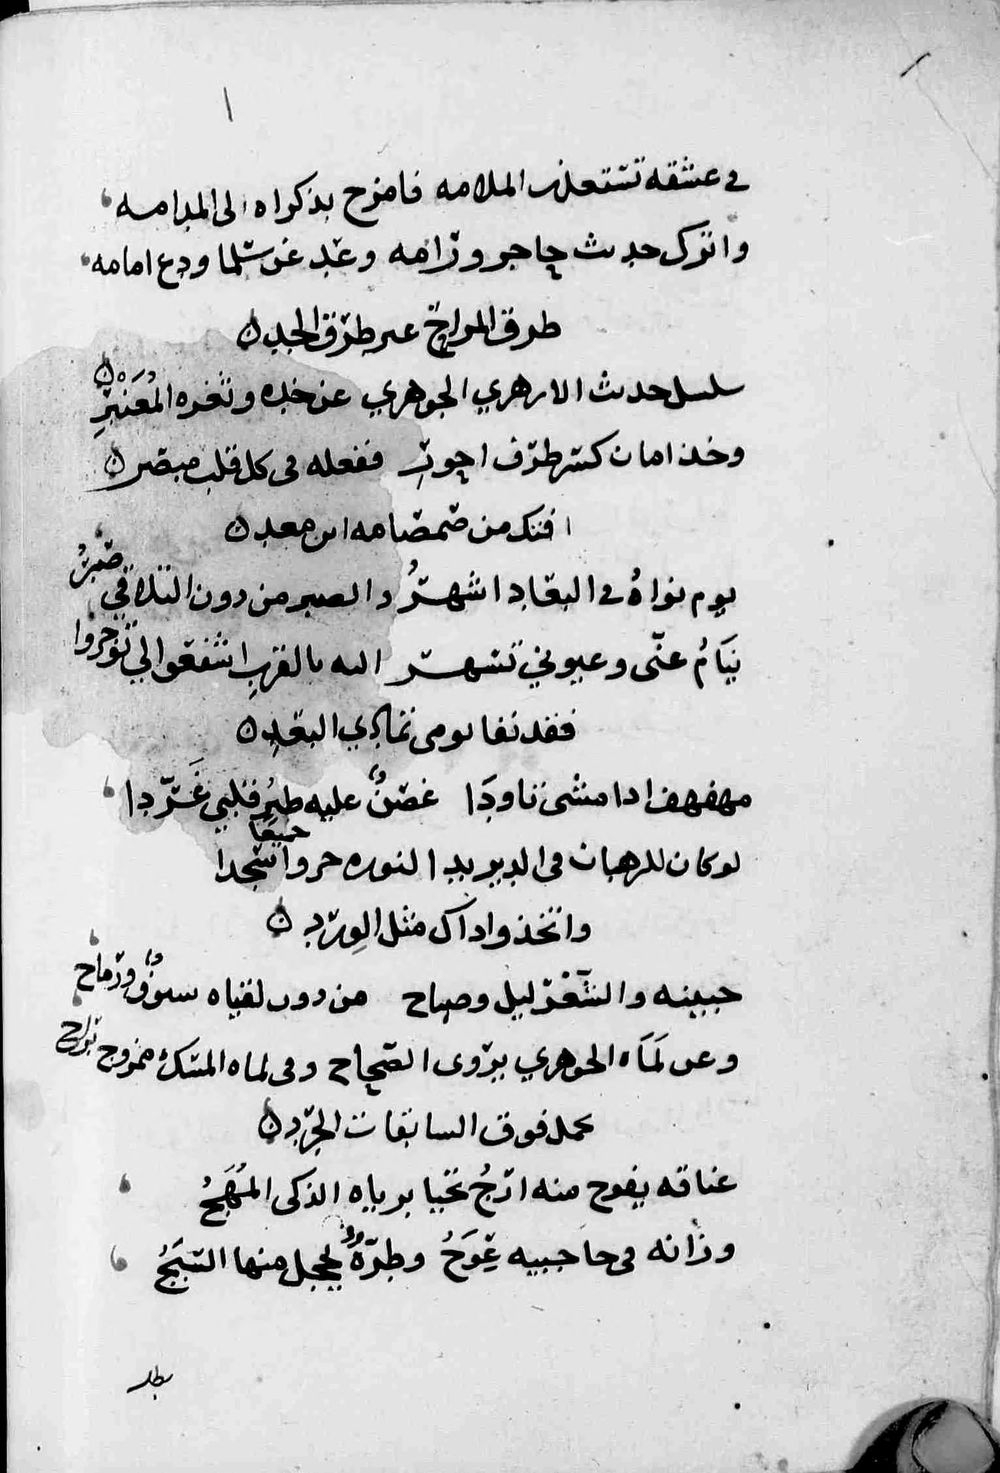 ١
في عشقه تستعذب الملامه فامزح بذكراه الى المدامه
واترك حديث حاجر ورامه وعد عن سلما ودع امامه
طرق المزاح عير طرق الجد
سلسل حديث الازهري الجوهري عن خده وثغره المعنبر
وخذ امان كسر طرف احور ففعله في كل قلب مبصر
افتك من صمصامه ابن معد
يوم نواهُ في البعاد اشهرُ والصبر من دون التلاقي صبرُ
نيامُ عنّي وعيوني تسهر الله بالقرب اشفعوا لي توجروا
فقد نفا نومى تمادي البعد
مهفهف اذا مشى تاودَا غصنٌ عليه طير قلبي غَرّدا
لو كان للرهبان في الدير بدا لنوره خروا جميعا سجدا
واتخذوا ذاك مثل الورد
جبينه والشعر ليل وصباح من دون لقياه سيوف ورماح
وعن لمَاه الجوهري يروى الصحاح وفي لماه المسك ممزوج براح
يحمل فوق السابقات الجرد
عناقه يفوح منه ارجُ تحيا برياه الذكى المهجُ
وزانه في حاجبيه عِوَجُ وطرّة يخجل منها السبجُ